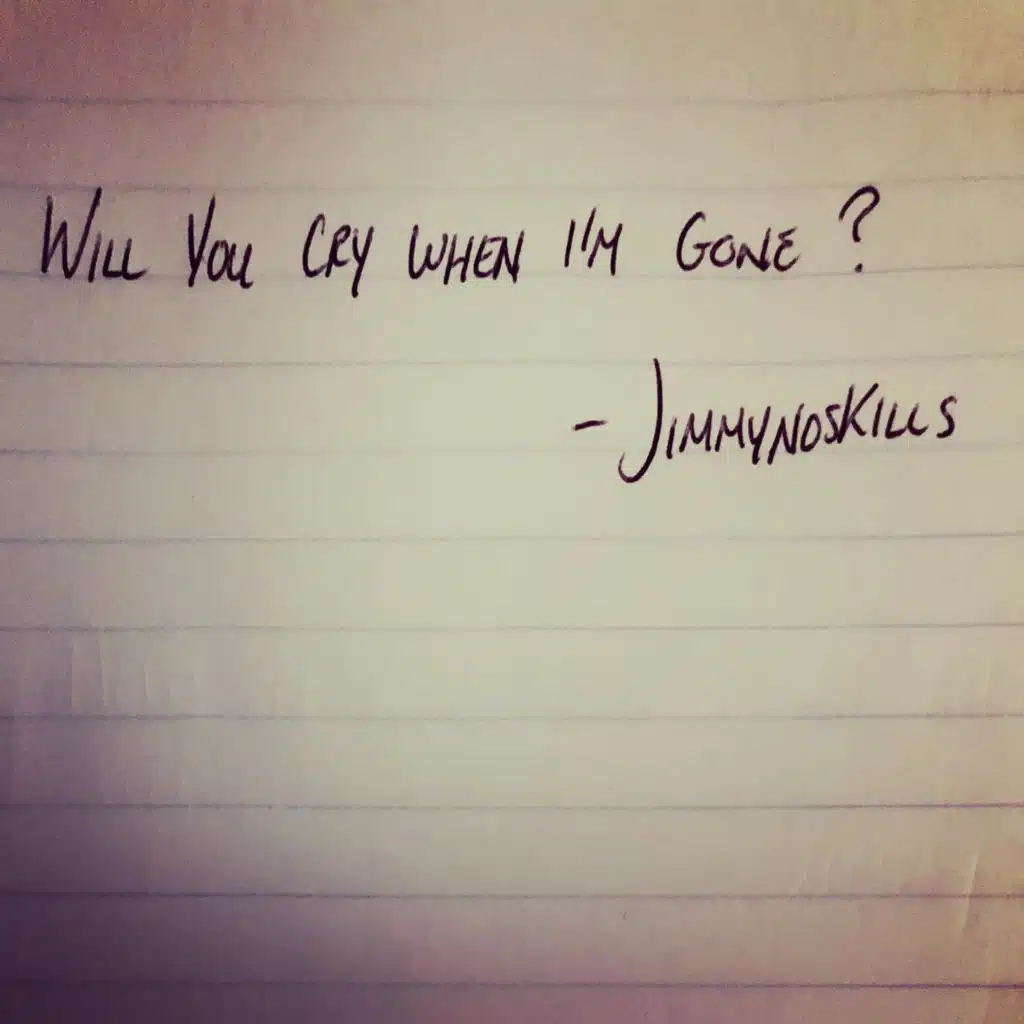 Will You Cry when I'm Gone?
- Jimmynoskills